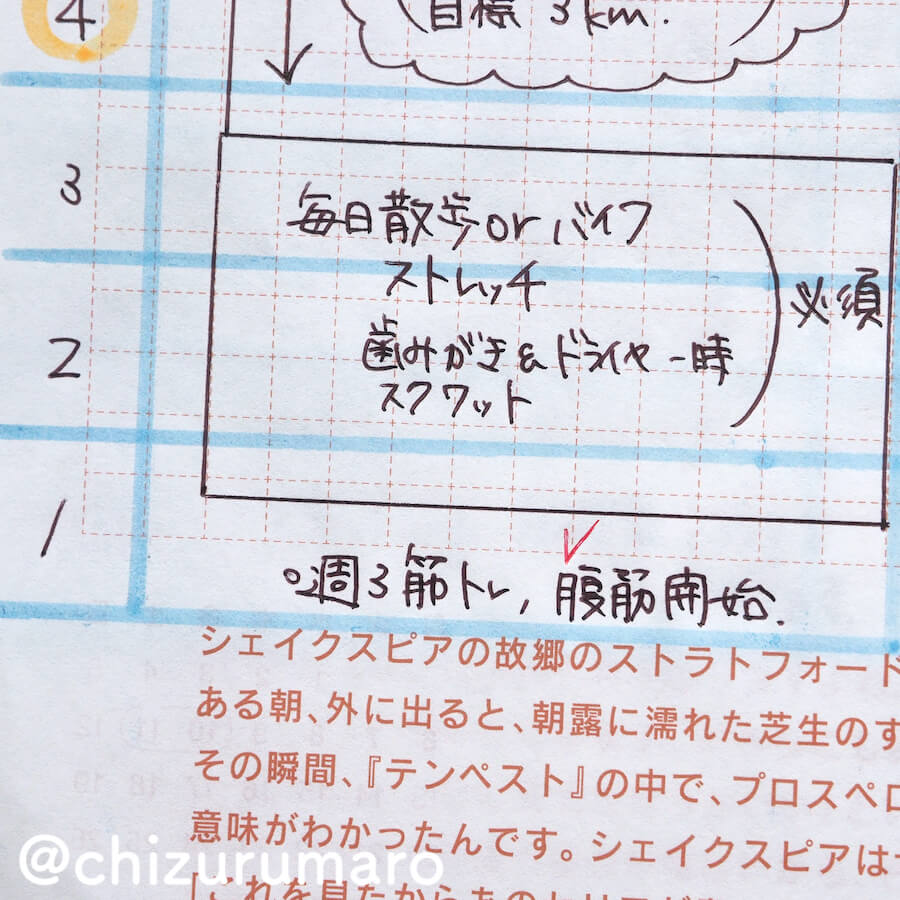 4
目標 3km.
3
毎日散歩orバイク
ストレッチ
必須
2
歯みがき&ドライヤー時
スクワット
1
○週3筋トレ,腹筋開始.
シェイクスピアの故郷のストラトフォード
ある朝、外に出ると、朝露に濡れた芝生のす
その瞬間、『テンペスト』の中で、プロスペロ
意味がわかったんです。シェイクスピアは
@chizurumaro